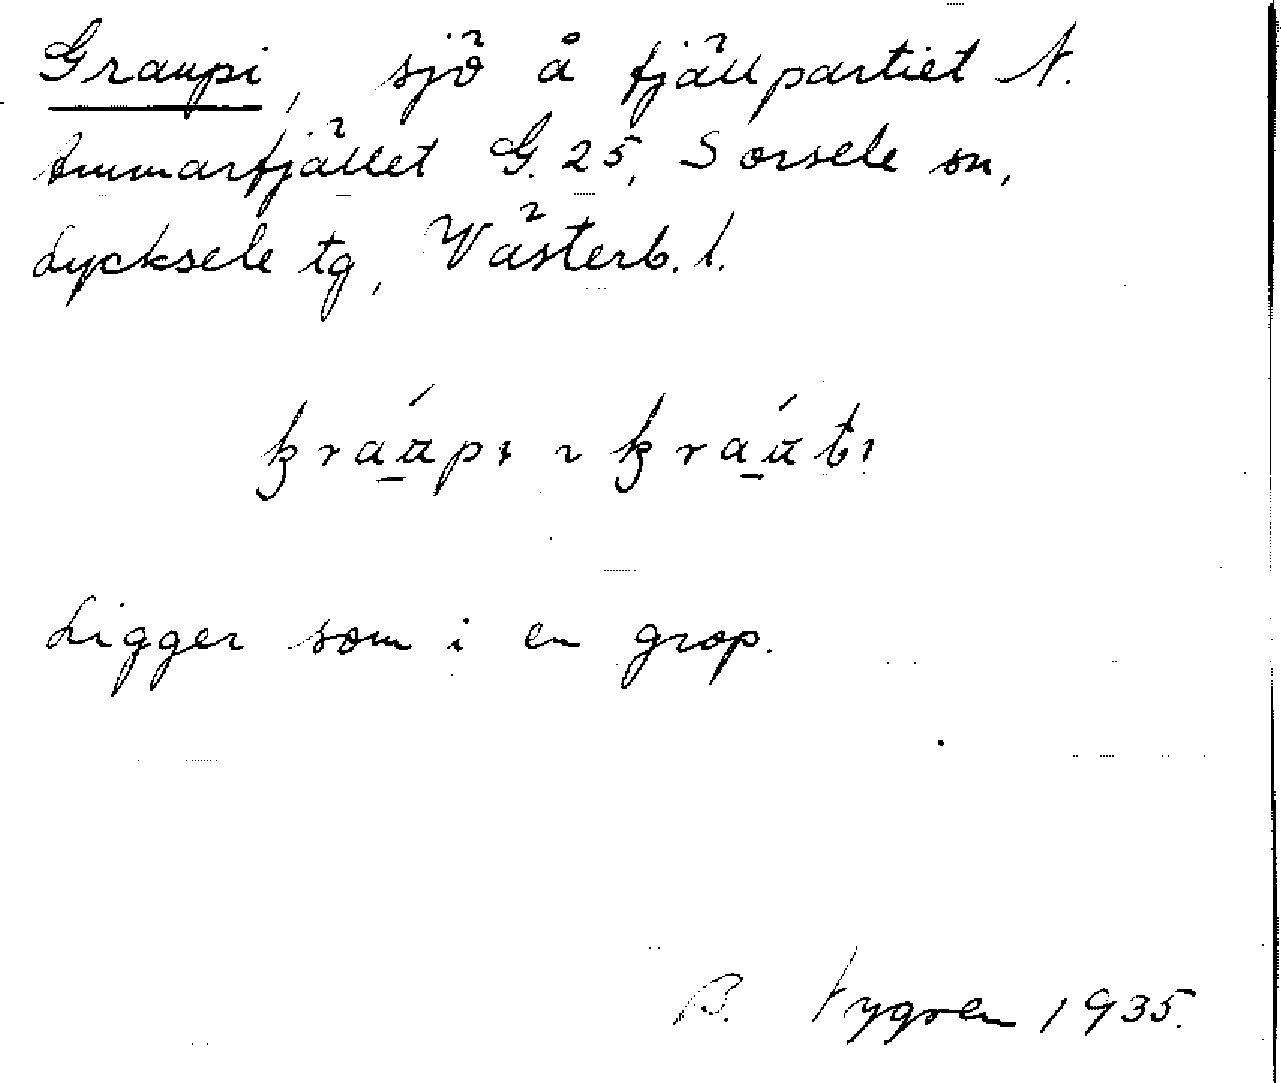 Graupi, sjö å fjällpartiet N.
Ammarfjället G. 25, Sorsele sn,
Lycksele tg, Västerb. l.
Ligger som i en grop.
B. Nygren 1935.